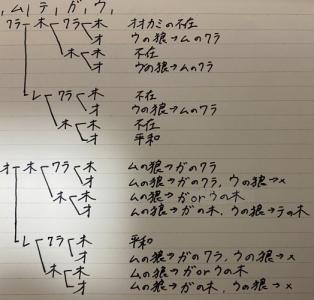 ,ム,テ,ガ,ウ,
ワラ 木 ワラ 木 オオカミの不在
オ ウの狼→ムのワラ
木 木 不在
オ ウの狼→ムのワラ
レ ワラ 木 不在
オ ウの狼→ムのワラ
木 木 不在
オ 平和
オ 木 ワラ 木 ムの狼→ガのワラ
オ ムの狼→ガのワラ, ウの狼→×
木 木 ムの狼→ガorウの木
オ ムの狼→ガの木, ウの狼→テの木
レ ワラ 木 平和
オ ムの狼→ガのワラ, ウの狼→×
木 木 ムの狼→ガorウの木
オ ムの狼→ガの木, ウの狼→×